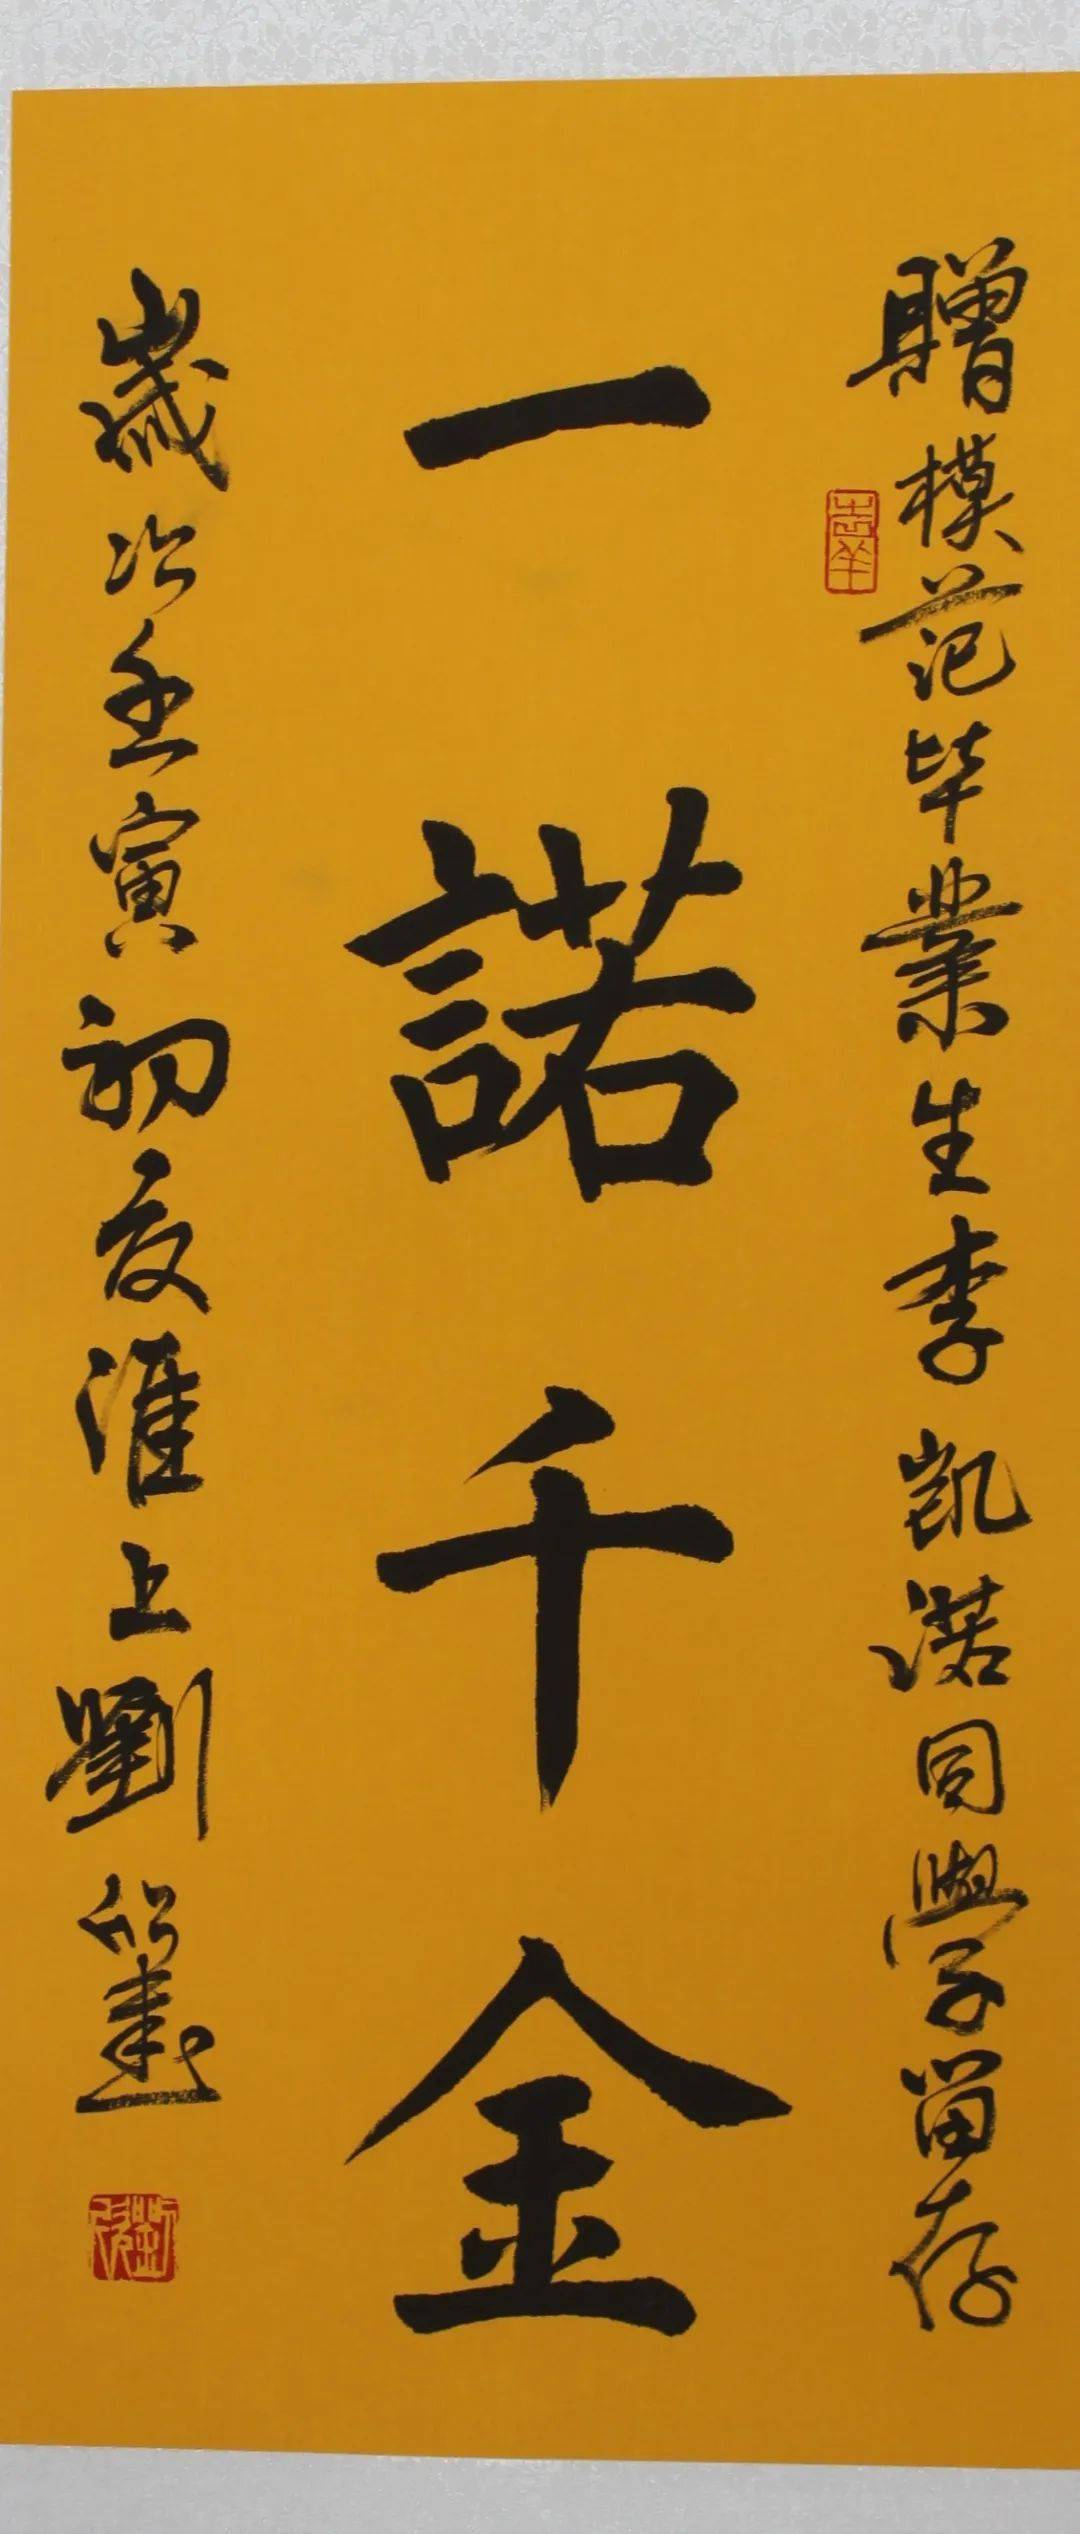 贈模范毕業生李凯諾同學留存
一諾千金
歲次壬寅初夏淮上劉